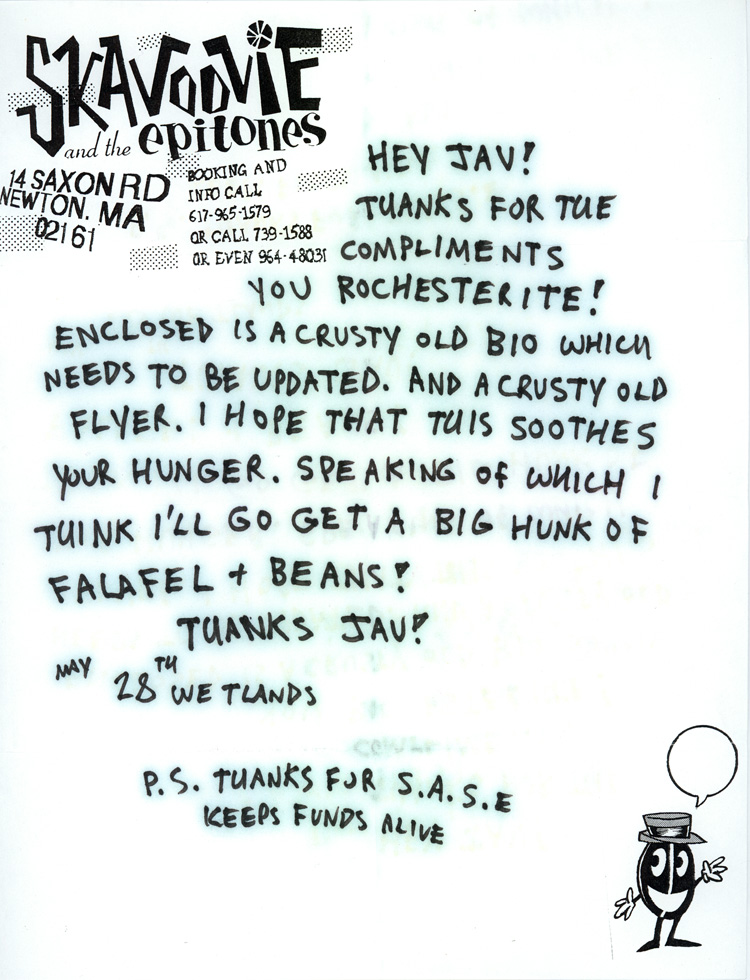 SKAVOOVIE
and the epitones
14 SAXON RD
NEWTON. MA
02161
BOOKING AND
INFO CALL
617-965-1579
OR CALL 739-1588
OR EVEN 964-48031
HEY JAV!
THANKS FOR THE
COMPLIMENTS
YOU ROCHESTERITE!
ENCLOSED IS A CRUSTY OLD BIO WHICH
NEEDS TO BE UPDATED. AND A CRUSTY OLD
FLYER. I HOPE THAT THIS SOOTHES
YOUR HUNGER. SPEAKING OF WHICH I
THINK I'LL GO GET A BIG HUNK OF
FALAFEL + BEANS!
THANKS JAV!
MAY 28TH WETLANDS
P.S. THANKS FOR S.A.S.E
KEEPS FUNDS ALIVE